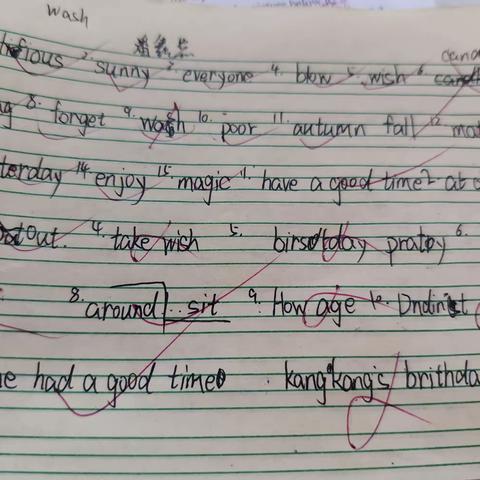 wash
2. sunny 3. everyone 4. blow 5. wish 6.
8. forget 9. wash 10. poor 11. autumn fall 12
14. enjoy 15. magic 1. have a good time 2. at
out. 4. take wish 5. birsotday pratoy 6.
8. around sit 9. How age 10.
had a good time kangkang's brithda